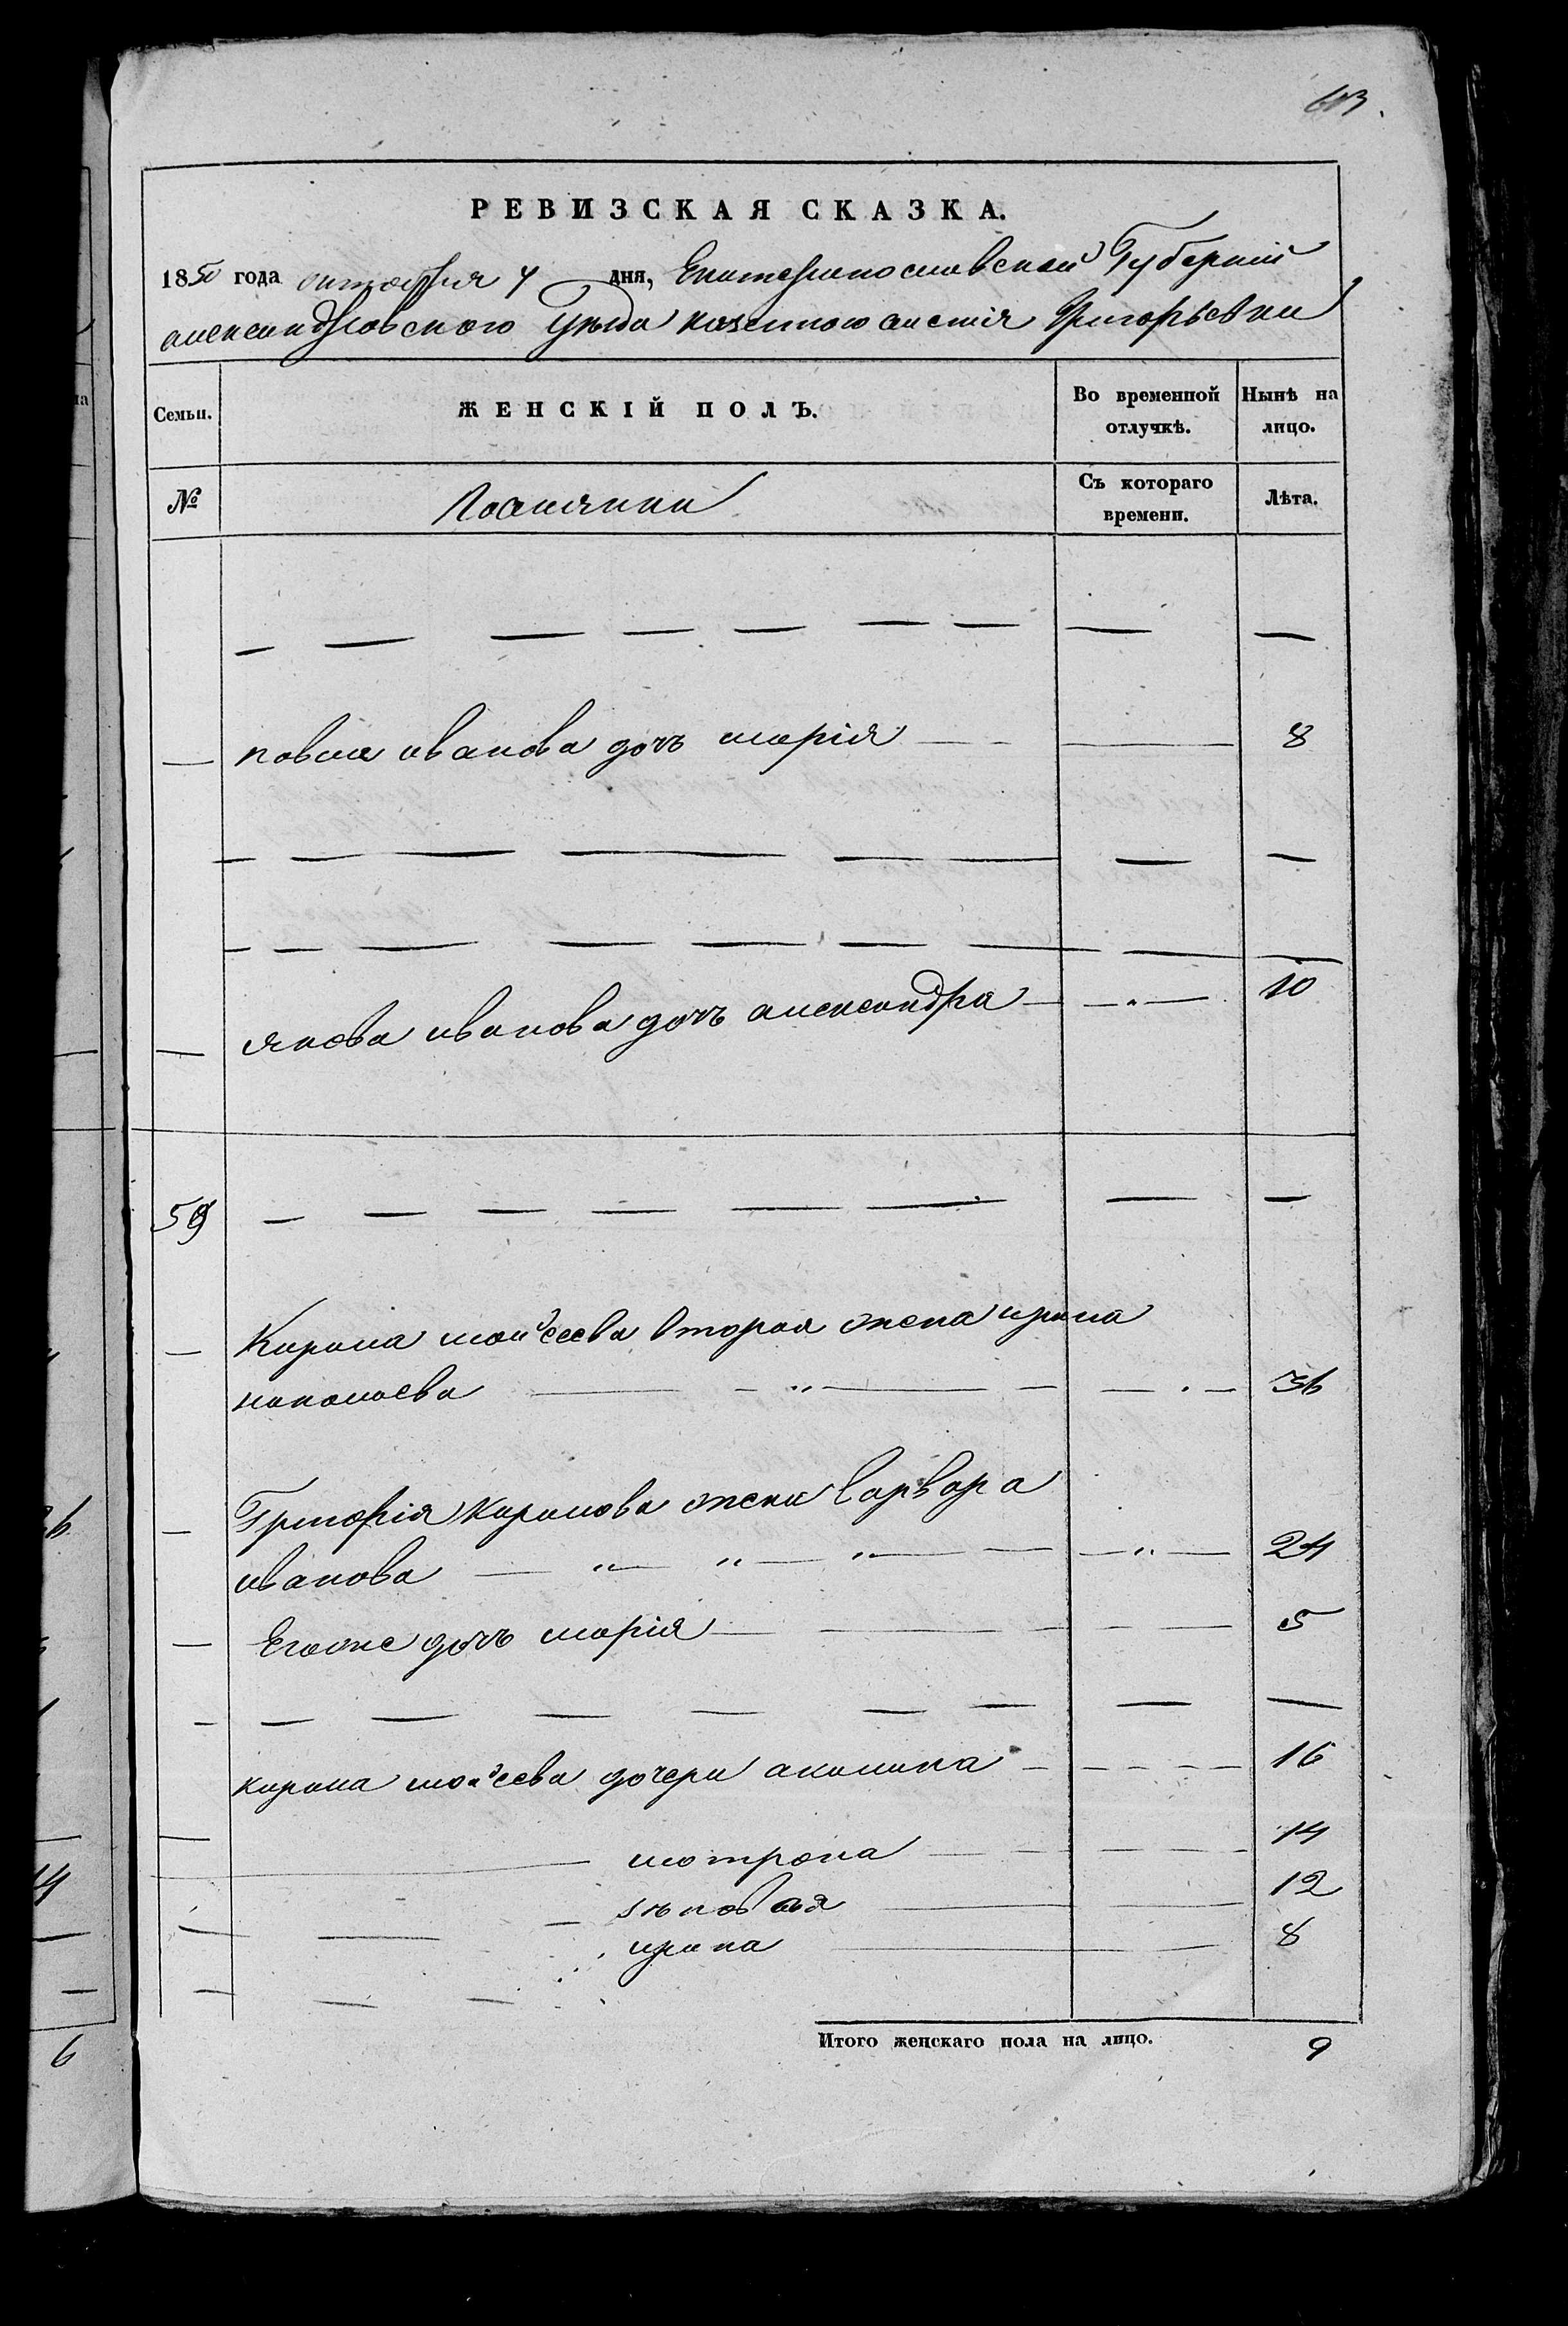 603.
РЕВИЗСКАЯ СКАЗКА.
1850 года октября 4 дня, Екатеринославской Губерніи
александровского Уезда казенного Григорьевки
Семьи. ЖЕНСКІЙ ПОЛЪ. Во временной отлучкѣ. Нынѣ на лицо.
№ Поселянки Съ котораго времени. Лѣта.
— — — — — — — — —
— повла иванова дочь марія — — — 8
— — — — — — — —
— — — — — — — — —
— якова иванова дочь александра — — . — 10
59 — — — — — — — —
— Кирила мойсеева вторая жена ирина
николаева — — „ — — — . — 36
— Григорія Кирилова жена варвара
иванова — „ — „ — „ — — — „ — 24
— Егоже дочь марія — — — — — 5
— — — — — — — — —
кирила мойсеева дочери акилина — — — — — 16
— — мотрона — — — — 14
— — — — — 12
— — ирина — — 8
— — —
Итого женскаго пола на лицо. 9
26
14
6